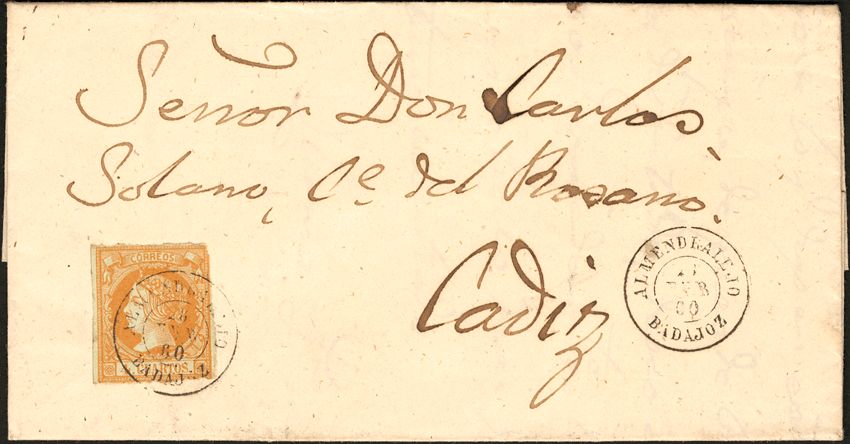 Señor Don Carlos
Solano, Cᵉ del Rosario.
Cadiz
CORREOS
ALMENDRALEJO
60
BADAJOZ
ALMENDRALEJO
60
BADAJOZ